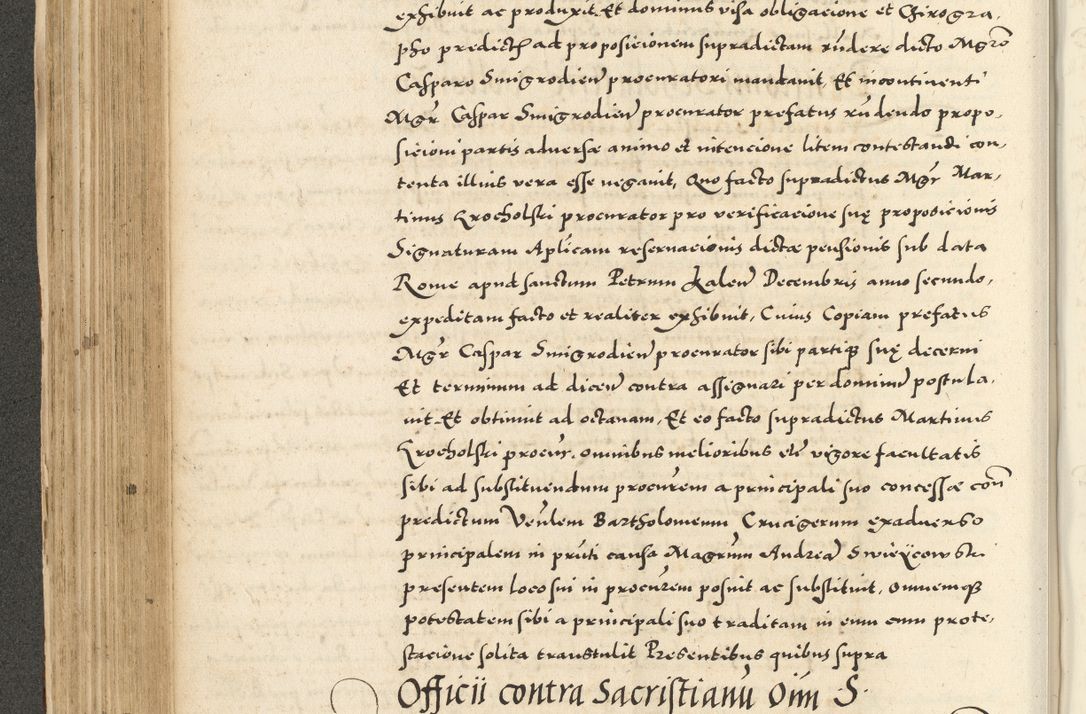 exhibuit ac produxit. Et dominus visa obligacione et Chirogra,
pho predicto ad proposicionem supradictam rñdere dicto Mgro
Casparo Smigrodien procuratori mandauit. Et incontinenti
Mgr Caspar Smigrodien procurator prefatus rñdendo propo,
sicioni partis aduersæ animo et intencione litem contestandi con,
tenta illius vera esse negauit, Quo facto supradictus Mgr Mar,
tinus Krocholski procurator pro verificacione suę proposicionis
Signaturam Aplicam reseruacionis dictæ pensionis sub data
Rome apud sanctum Petrum Kalen Decembris anno secundo,
expeditam facto et realiter exhibuit, Cuius Copiam prefatus
Mgr Caspar Smigrodien procurator sibi partiq suę decerni
Et terminum ad dicen contra assignari per dominum postula,
uit. Et obtinuit ad octauam, Et eo facto supradictus Martinus
Krocholski procur. omnibus melioribus etc vigore facultatis
sibi ad substituendum procurem a principali suo concessæ con
predictum Venlem Bartholomeum Crucigerum exaduerso
principalem in pnti causa Magrum Andream Swieżcowski
presentem loco sui in procurem posuit ac substituit, omnemq
potestatem sibi a principali suo traditam in eum cum prote,
stacione solita transtulit Presentibus quibus supra
Officii contra Sacristianū Oim S.